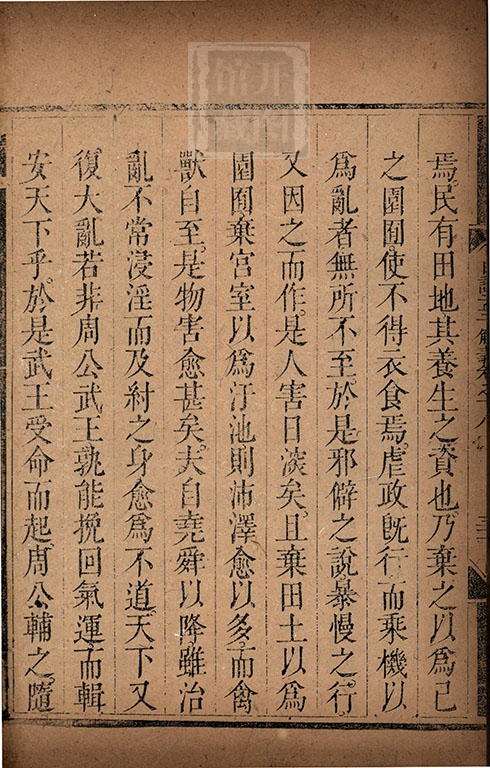 焉民有田地其養生之資也乃棄之以為己
之園囿使不得衣食焉虐政旣行而乘機以
為亂者無所不至於是邪僻之說暴慢之行
又因之而作是人害日淡矣且棄田土以為
園囿棄宮室以為汙池則沛澤愈以多而禽
獸自至是物害愈甚矣夫自堯舜以降雖治
亂不常浸淫而及紂之身愈為不道天下又
復大亂若非周公武王孰能挽回氣運而輯
安天下乎於是武王受命而起周公輔之隨